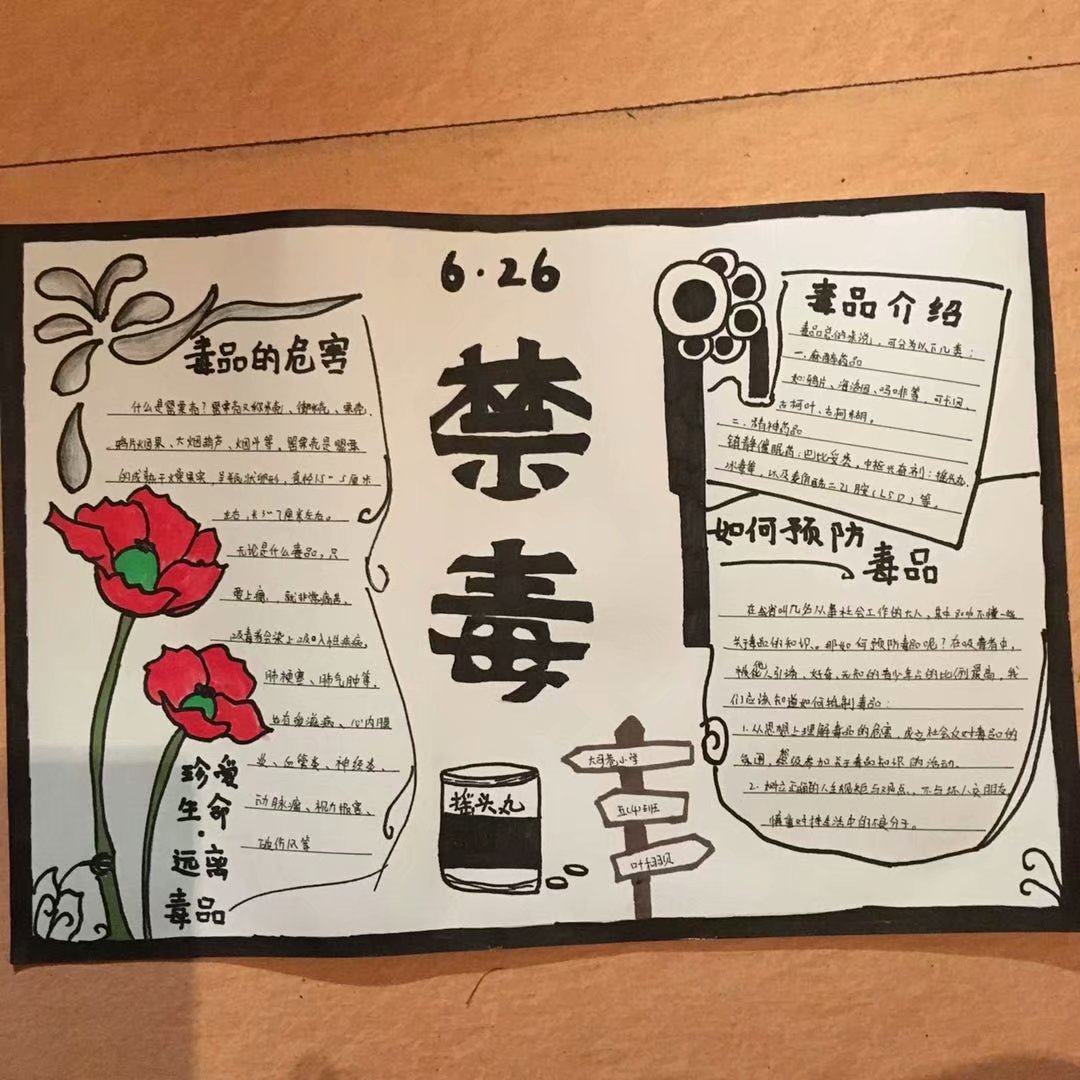 6·26
禁
毒
毒品的危害
什么是罂粟壳?罂粟壳又称米壳、御米壳、粟壳、
鸦片烟果、大烟葫芦、烟斗等。罂粟壳是罂粟
的成熟干燥果实,呈瓶状卵形,直径1.5~5厘米
左右,长3~7厘米左右。
无论是什么毒品,只
要上瘾,就非常痛苦。
吸毒者会染上吸入性疾病,
肺梗塞、肺气肿等,
也有败血病、心内膜
炎、血管炎、神经炎、
动脉瘤、视力损害、
破伤风等
珍爱
生命·
远离
毒品
摇头丸
小学
五(4)班
叶
毒品介绍
毒品总的来说,可分为以下几类:
一.麻醉药品
如:鸦片、海洛因、吗啡等,可卡因、
古柯叶、古柯糊。
二.精神药品
镇静催眠药:巴比妥类。中枢兴奋剂:摇头丸、
冰毒等,以及麦角酰二乙胺(LSD)等。
如何预防
毒品
在我省叫几名从事社会工作的大人,其中30%不懂一些
关于毒品的知识。那如何预防毒品呢?在吸毒者中,
被他人引诱、好奇、无知的青少年占的比例最高,我
们应该知道如何抵制毒品:
1.从思想上理解毒品的危害,成立社会反对毒品的
氛围,积极参加关于毒品知识的活动。
2.树立正确的人生观与观点,不与坏人交朋友
慎重对待生活中的不良分子。